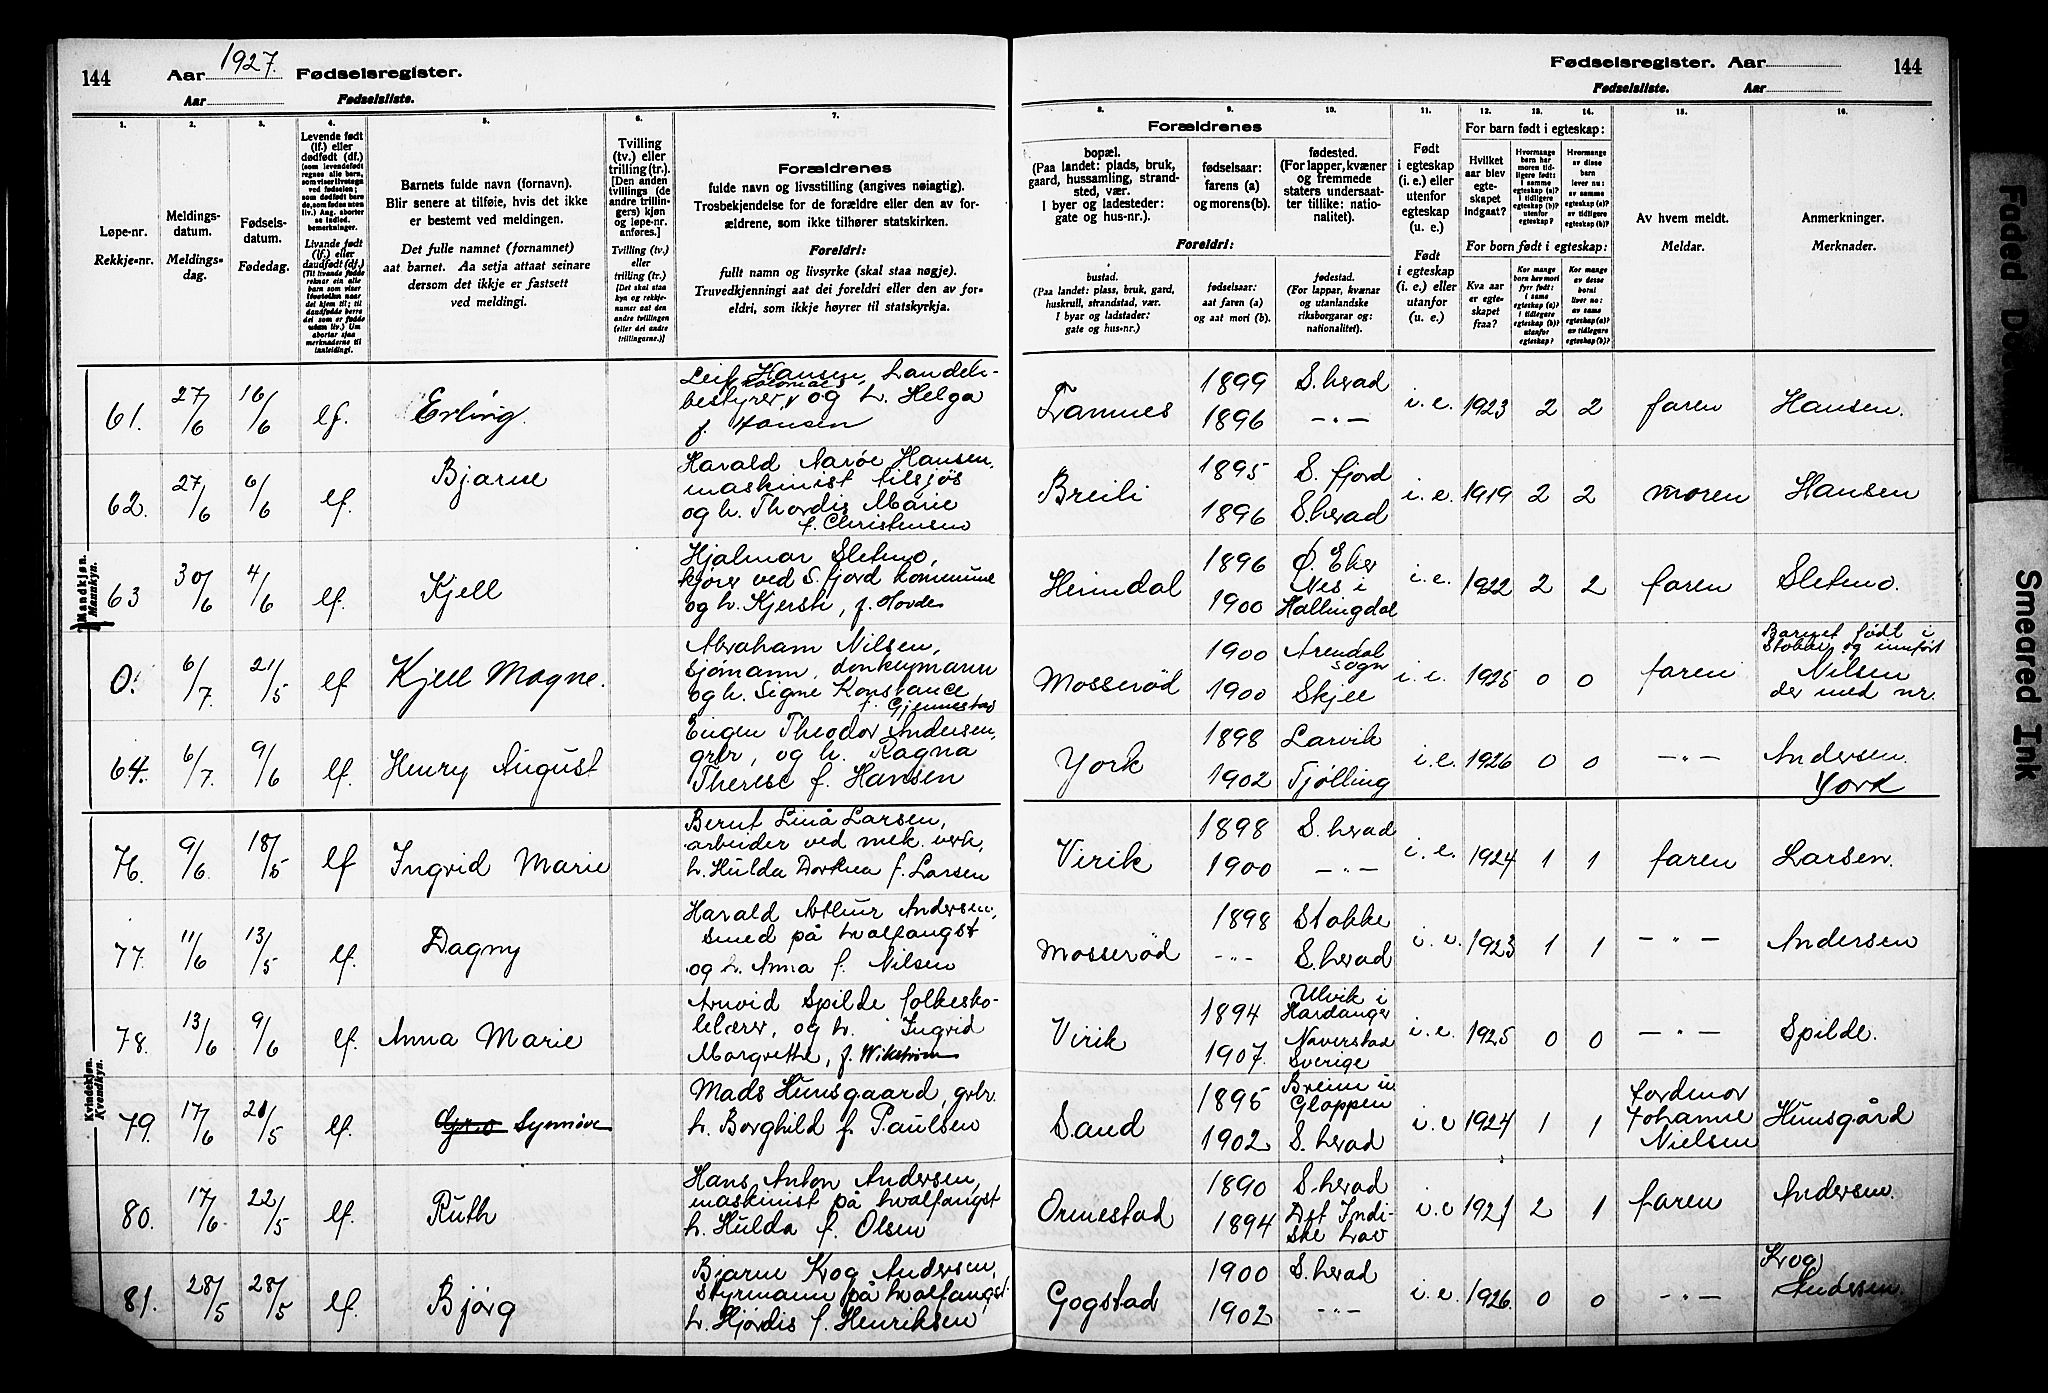 144
Aar 1927. Fødselsregister.
Aar Fødselsliste.
1.
2.
3.
4.
5.
6.
7.
Løpe-nr.
Rekkje-nr.
Meldings-
datum.
Meldings-
dag.
Fødsels-
datum.
Fødedag.
Levende født
(lf.) eller
dødfødt (df.)
Barnets fulde navn (fornavn).
Blir senere at tilføie, hvis det ikke
er bestemt ved meldingen.
Det fulle namnet (fornamnet)
aat barnet. Aa setja attaat seinare
dersom det ikkje er fastsett
ved meldingi.
Tvilling
(tv.) eller
trilling (tr.)
[Den anden
tvillings (de
andre trillin-
gers) kjøn
og løpe-nr.
anføres.]
Tvilling (tv.)
eller
trilling (tr.)
Forældrenes
fulde navn og livsstilling (angives nøiagtig).
Trosbekjendelse for de forældre eller den av for-
ældrene, som ikke tilhører statskirken.
Foreldri:
fullt namn og livsyrke (skal staa nøgje).
Truvedkjenningi aat dei foreldri eller den av for-
eldri, som ikkje høyrer til statskyrkja.
Fødselsregister. Aar
144
Fødselsliste. Aar
8.
9.
10.
11.
12.
13.
14.
15.
16.
Forældrenes
bopæl.
(Paa landet: plads, bruk,
gaard, hussamling, strand-
sted, vær.
I byer og ladesteder:
gate og hus-nr.).
fødselsaar:
farens (a)
og morens(b).
fødested.
(For lapper, kvæner
og fremmede
staters undersaat-
ter tillike: natio-
nalitet).
Foreldri:
bustad.
(Paa landet: plass, bruk, gard,
huskrull, strandstad, vær.
I byar og ladstader:
gate og hus-nr.)
fødselsaar:
aat faren (a)
og aat mori (b).
fødestad.
(For lappar, kvænar
og utanlandske
riksborgarar og:
nationalitet).
Født
i egteskap
(i. e.) eller
utenfor
egteskap
(u. e.)
Født
i egteskap
(i. e.) eller
utanfor
egteskap
(u. e.)
For barn født i egteskap:
Hvilket
aar blev
egte-
skapet
indgaat?
For born født i egteskap:
Kva aar
er egte-
skapet
fraa?
Av hvem meldt.
Meldar.
Anmerkninger.
Merknader.
Mandkjøn.
Mannkyn.
61. 27/6 16/6 lf. Erling.
Leif Hansen, handels-
bestyrer, og h. Helga
f. Hansen
1899 S. herad
1896 —"—
i. e. 1923 2 2 faren Hansen.
62. 27/6 6/6 lf. Bjarne
Harald Narøe Hansen,
maskinist tilsjøs
og h. Thordis Marie
f. Christensen
Breili
1895 S. fjord
1896 S.herad
i. e. 1919 2 2 moren Hansen
63 30/6 4/6 lf. Kjell
Hjalmar Sletmo,
kjører ved S. fjord kommune
og h. Kjersti, f. Hovde
Heimdal
1896 Ø. Eker
1900 Nes i
Hallingdal
i. e. 1922 2 2 faren Sletmo.
0. 6/7 21/5 lf Kjell Magne.
Abraham Nilsen,
sjømann, donkeymann
og h. Signe Konstance,
f. Gjennestad
Mosserød
1900 Arendal
sogn
1900 Skjee
i. e. 1925 0 0 faren
Barnet født i
Stokke og innført
Nilsen
der med nr.
64. 6/7 9/6 lf. Henry August
Eugen Theodor Andersen,
grbr, og h. Ragna
Therese f. Hansen
York
1898 Larvik
1902 Tjølling
i. e. 1926 0 0 —"—
Andersen.
York
Kvindekjøn.
Kvendkyn.
76. 9/6 18/5 lf Ingrid Marie
Bernt Linå Larsen,
arbeider ved mek. verk,
h. Hulda Dorthea f. Larsen
Virik
1898 S. herad
1900 —"—
i. e. 1924 1 1 faren Larsen.
77. 11/6 13/5 lf. Dagny
Harald Arthur Andersen,
smed på hvalfangst
og h. Anna f. Nilsen
Mosserød
1898 Stokke
—"— S.herad
i. e. 1923 1 1 —"— Andersen
78. 13/6 9/6 lf. Anna Marie
Arnvid Spilde folkesko-
lelærer, og h. Ingrid
Margrethe, f. Wikstrøm
Virik
1894 Ulvik i
Hardanger
1907. Naverstad
Sverige
i. e. 1925 0 0 —"— Spilde.
79. 17/6 21/5 lf. Synnøve
Mads Hunsgaard, grbr.
h. Borghild f. Paulsen
Sand
1895 Breim i
Gloppen
1902 S. herad
i. e 1924 1 1
Jordmor
Johanne
Nielsen
Hunsgård
80. 17/6 22/5 lf. Ruth
Hans Anton Andersen,
maskinist på hvalfangst
h. Hulda f. Olsen
Ormestad
1890 S.herad
1894 Det Indi-
ske hav
i. e 1921 2 1 faren Andersen.
81. 28/5 28/5 lf. Bjørg
Bjarne Krog Andersen,
styrmann på hvalfangst.
h. Hjørdis f. Henriksen
Gogstad
1900 S.herad
1902 —"—
i. e. 1926. 0 0 —"—
Krog
Andersen.
Faded Do
Smeared Ink